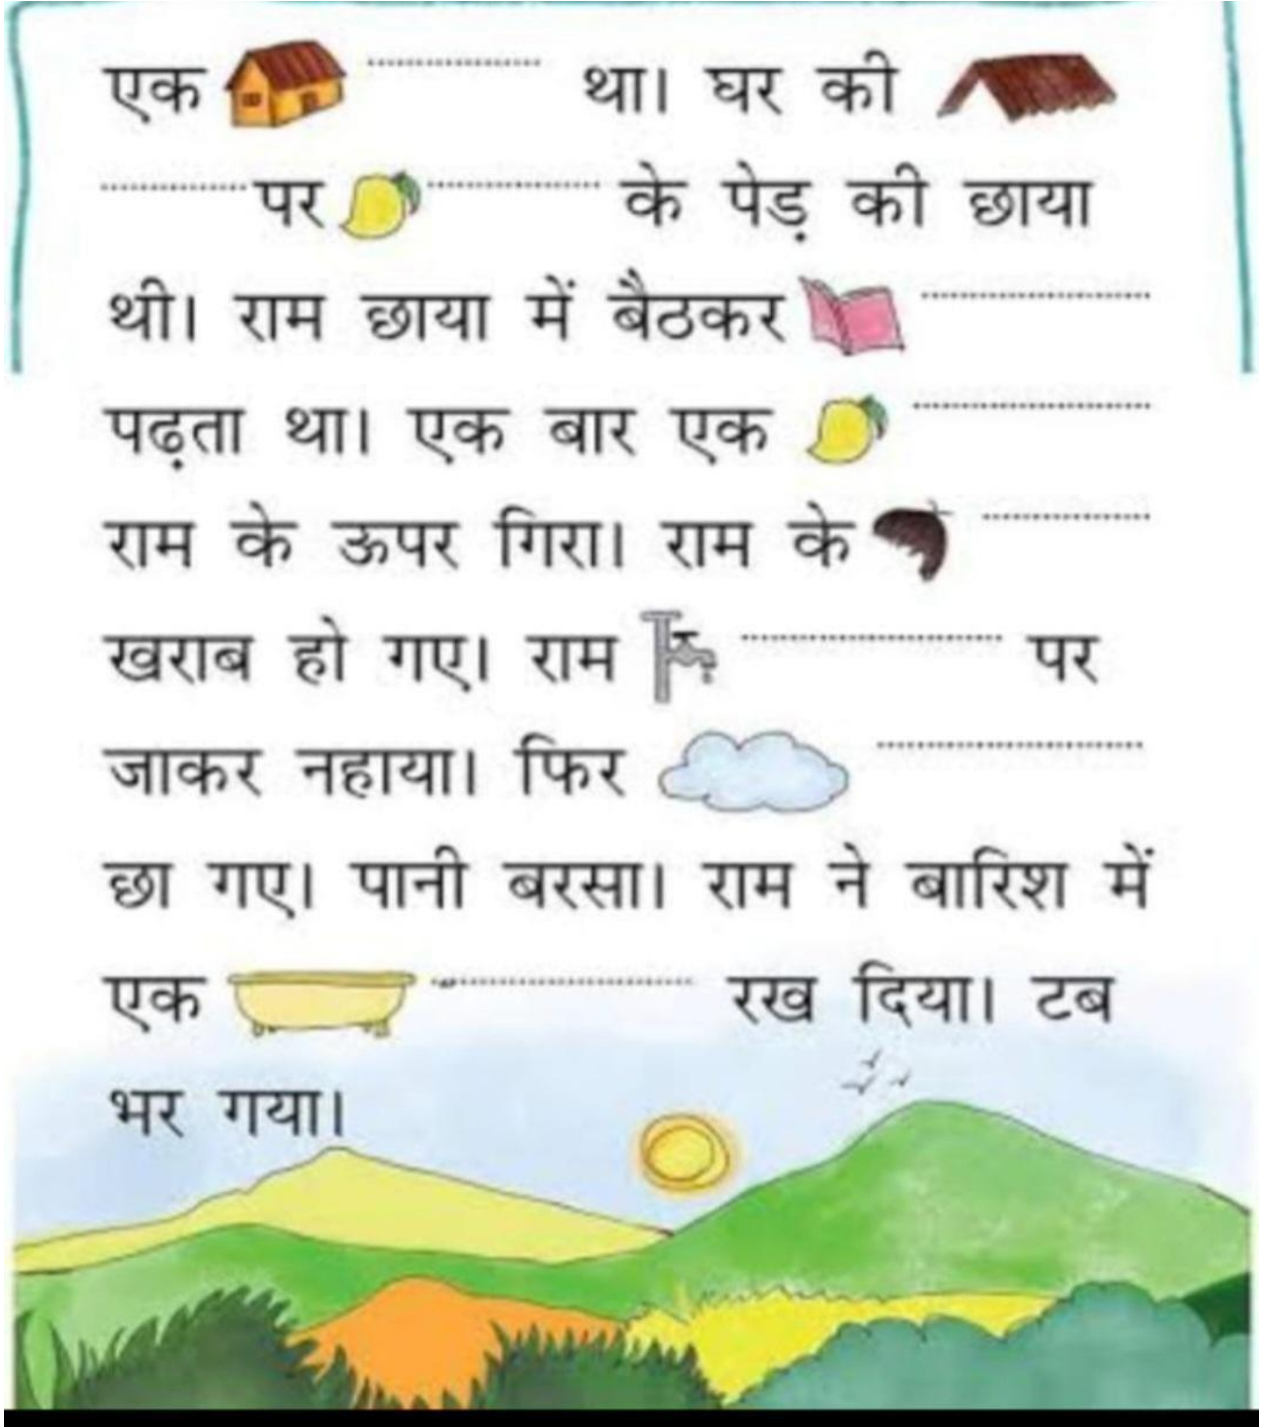 एक था। घर की
पर के पेड़ की छाया
थी। राम छाया में बैठकर
पढ़ता था। एक बार एक
राम के ऊपर गिरा। राम के
खराब हो गए। राम पर
जाकर नहाया। फिर
छा गए। पानी बरसा। राम ने बारिश में
एक रख दिया। टब
भर गया।